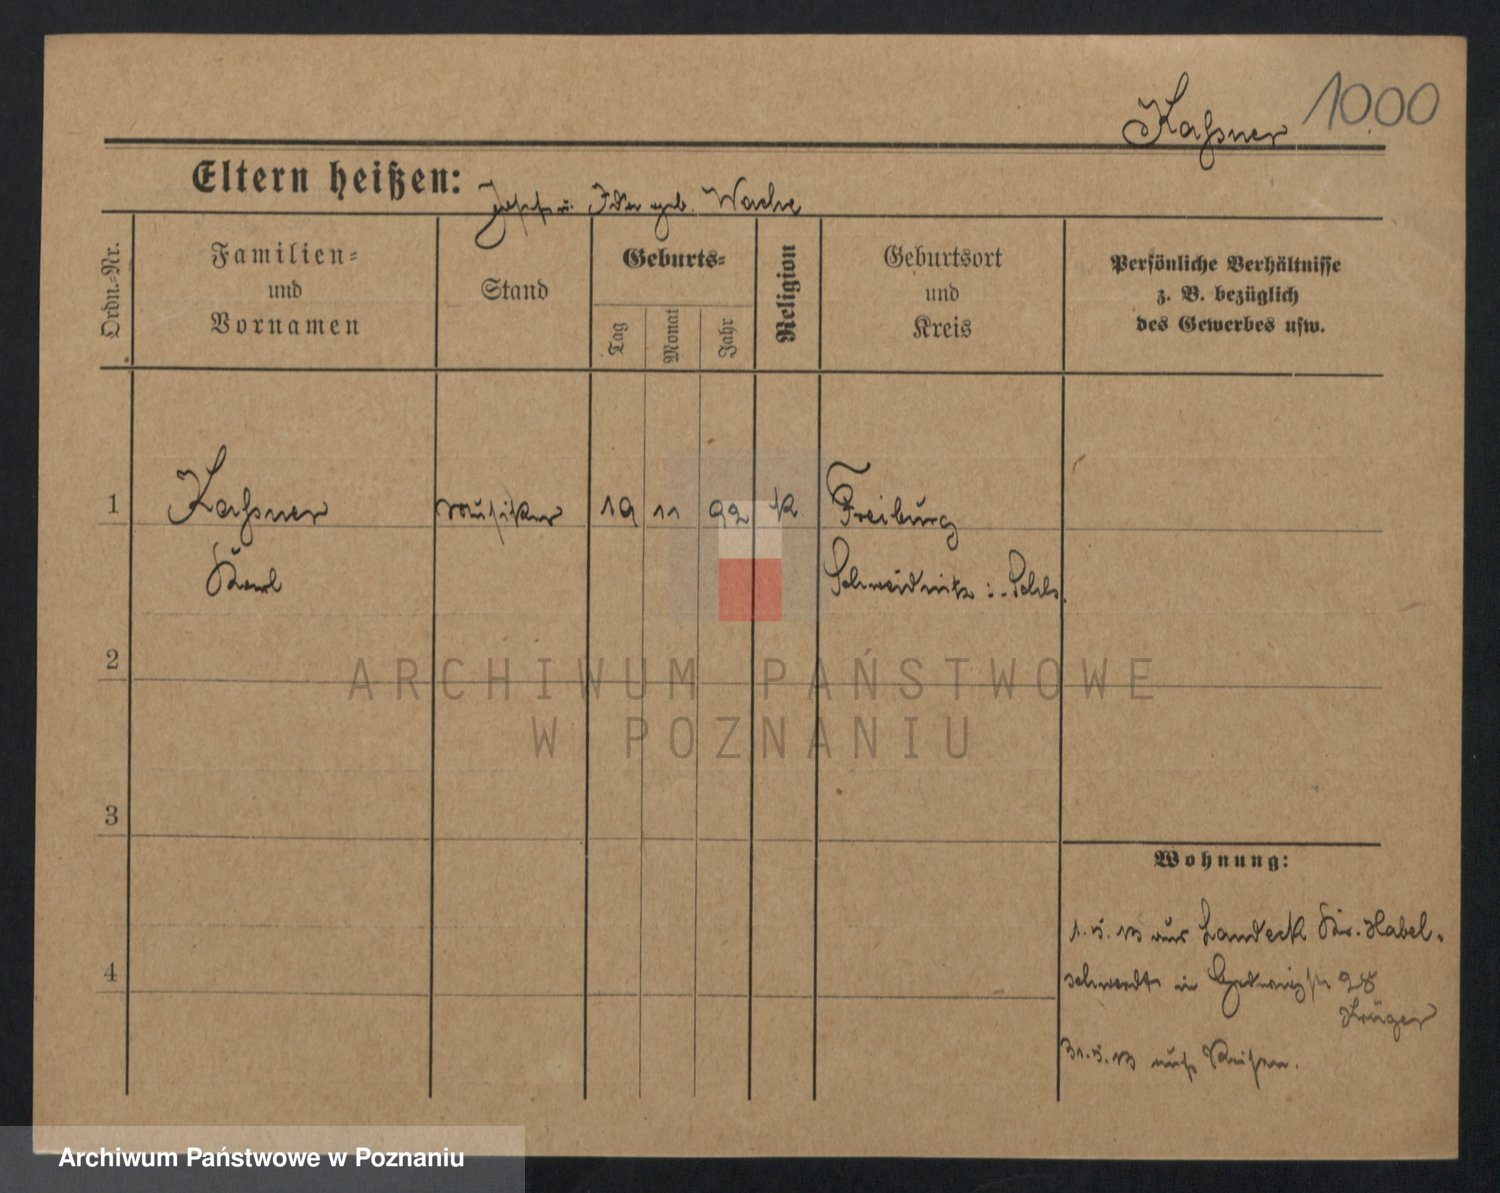 Kaßner 1000
Eltern heißen: Joseph u. Ida geb. Wache
Ordn.-Nr.
Familien-
und
Vornamen
Stand
Geburts-
Tag
Monat
Jahr
Religion
Geburtsort
und
Kreis
Persönliche Verhältnisse
z. B. bezüglich
des Gewerbes usw.
1 Kaßner Musiker 19 11 92 k Freiburg
Karl Schweidnitz i. Schls.
2
3
4
Wohnung:
1.5.13 aus Landeck Kr. Habel-
schwerdt in 28
Krüger
31.5.13 auf Reisen.
ARCHIWUM PAŃSTWOWE
W POZNANIU
Archiwum Państwowe w Poznaniu